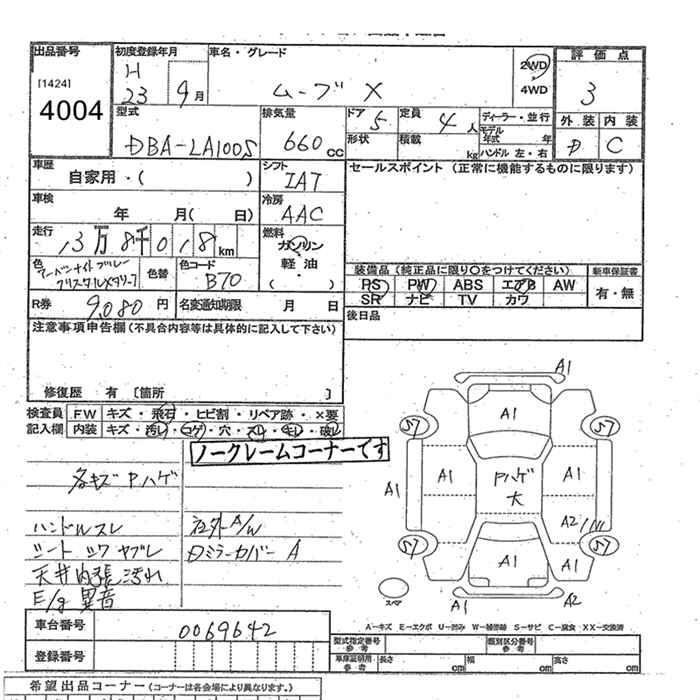 出品番号
[1424]
4004
初度登録年月
H
23 9月
車名・グレード
ムーブ X
2WD
4WD
評価点
3
外装 内装
D C
型式
DBA-LA100S
排気量
660 cc
ドア 5
定員 4人
ディーラー・並行
モデル年式 年
ハンドル 左・右
形状
積載 kg
車歴
自家用・( )
シフト
IAT
セールスポイント (正常に機能するものに限ります)
車検
年 月( 日)
冷房
AAC
走行
13万8千018km
燃料
ガソリン
軽油・
( ・ )
色
アーバンナイトブルー
クリスタルメタリック
色替
色コード
B70
装備品 (純正品に限り○をつけてください)
新車保証書
PS PW ABS エアB AW
SR ナビ TV カワ
有・無
R券
9,080円
名変通知期限 月 日
後日品
注意事項申告欄 (不具合内容等は具体的に記入して下さい)
修復歴 有 [箇所 ]
検査員
記入欄
FW キズ・飛石・ヒビ割・リペア跡・×要
内装 キズ・汚レ・コゲ・穴・スレ・キレ・破レ
ノークレームコーナーです
各キズ Pハゲ
ハンドルスレ 社外A/W
シート コゲ ヤブレ
ミラーカバー A
天井内張汚れ
E/g 異音
A1
A1
S7 S7
A1 A1 Pハゲ 大 A1 A1
A2
S7 S7
A1
A1 A2
スペア
A-キズ E-エクボ U-凹み W-補修跡 S-サビ C-腐食 XX-交換済
車台番号
0069642
登録番号
型式指定番号
参考
類別区分番号
参考
車庫証明
参考
長さ cm
幅 cm
高さ cm
希望出品コーナー (コーナーは各会場により異なります。)